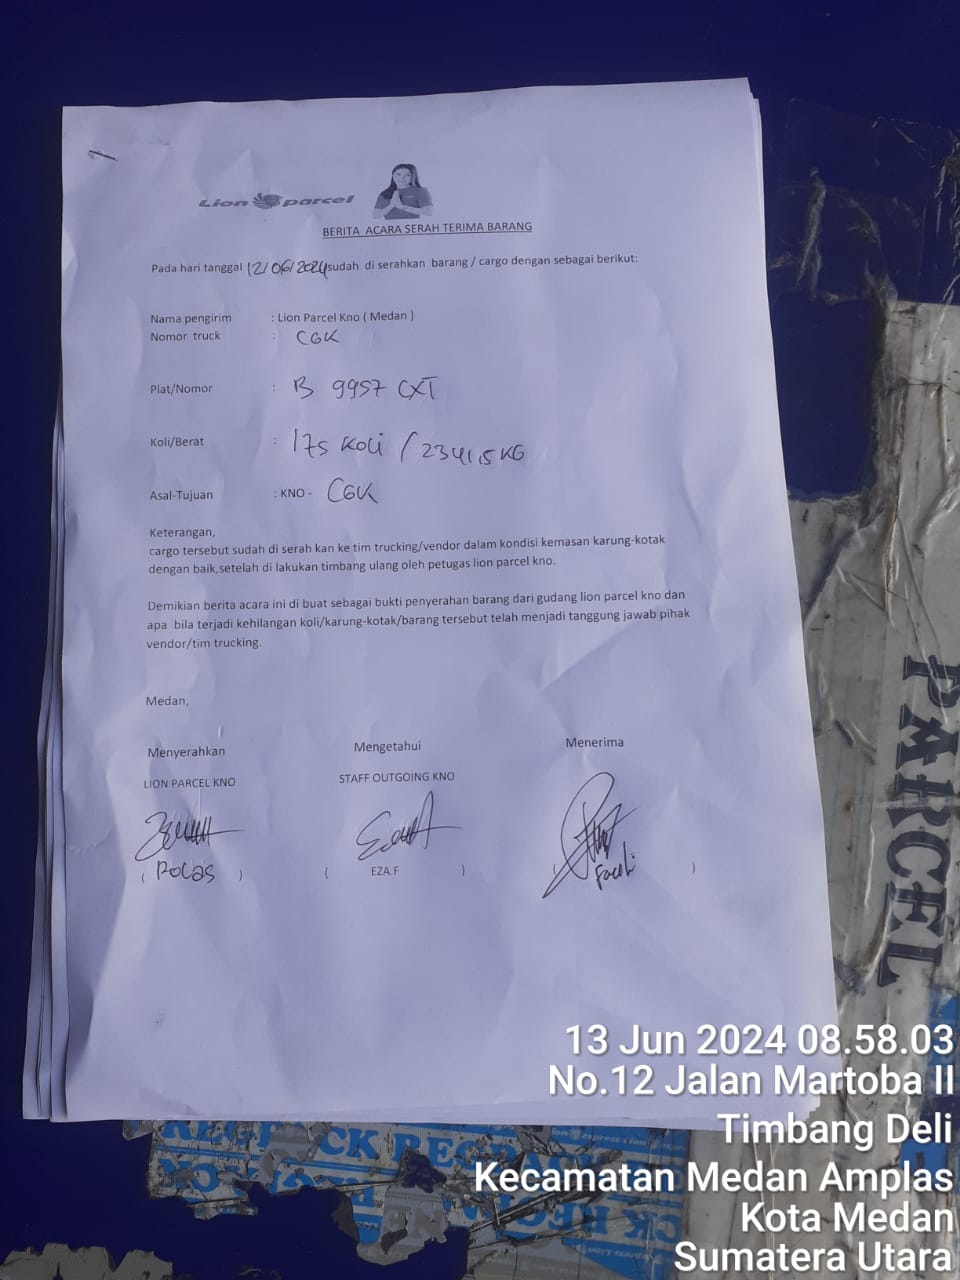 Lion parcel
BERITA ACARA SERAH TERIMA BARANG
Pada hari tanggal 12/06/2024 sudah di serahkan barang / cargo dengan sebagai berikut:
Nama pengirim : Lion Parcel Kno ( Medan )
Nomor truck : CGK
Plat/Nomor : B 9957 CXT
Koli/Berat : 175 Koli / 2341,5 KG
Asal-Tujuan : KNO - CGK
Keterangan,
cargo tersebut sudah di serah kan ke tim trucking/vendor dalam kondisi kemasan karung-kotak
dengan baik,setelah di lakukan timbang ulang oleh petugas lion parcel kno.
Demikian berita acara ini di buat sebagai bukti penyerahan barang dari gudang lion parcel kno dan
apa bila terjadi kehilangan koli/karung-kotak/barang tersebut telah menjadi tanggung jawab pihak
vendor/tim trucking.
Medan,
Menyerahkan Mengetahui Menerima
LION PARCEL KNO STAFF OUTGOING KNO
( Rolas ) ( EZA.F ) ( )
PARCEL
13 Jun 2024 08.58.03
No.12 Jalan Martoba II
Timbang Deli
Kecamatan Medan Amplas
Kota Medan
Sumatera Utara